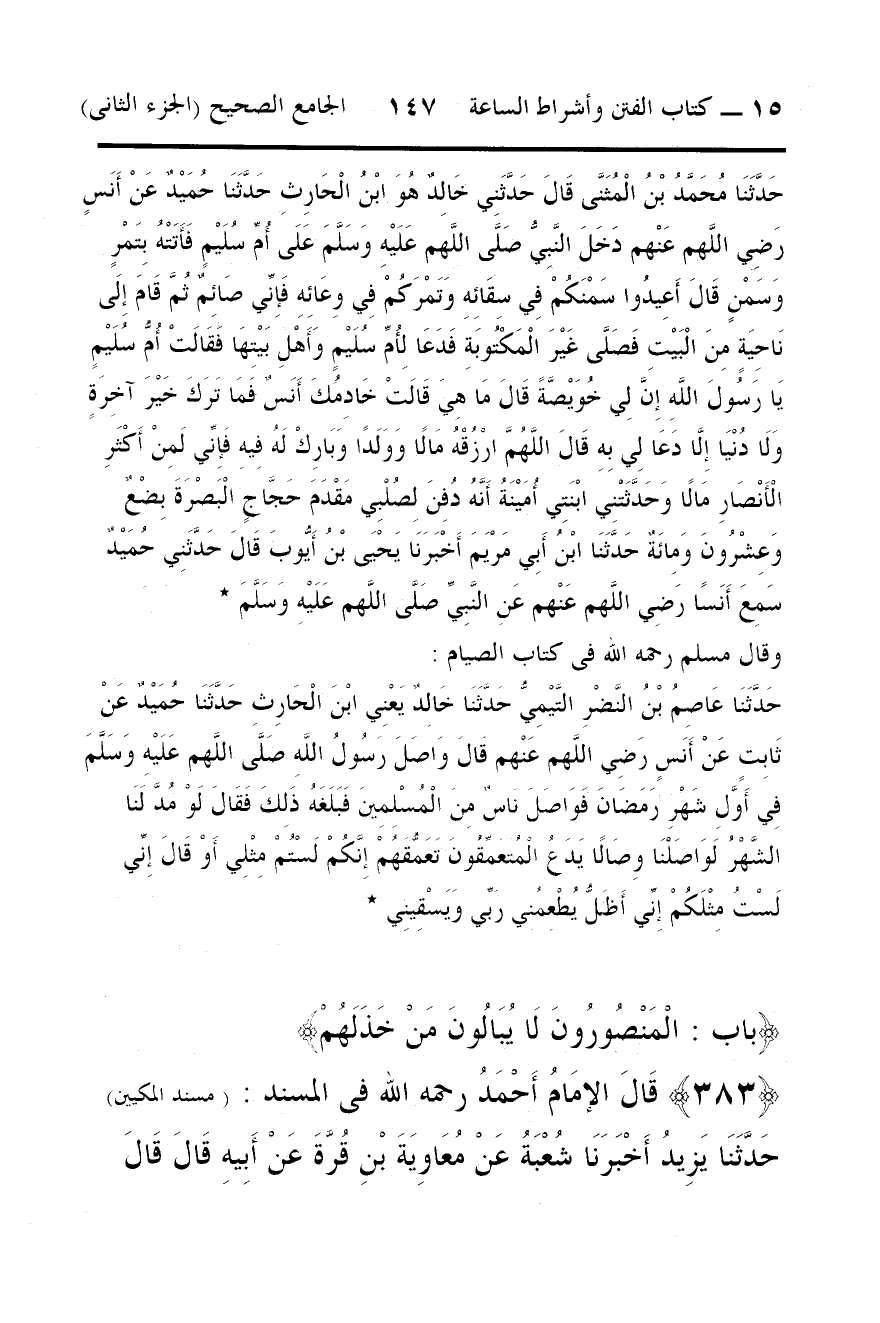 ١٥ ــ كتاب الفتن وأشراط الساعة ١٤٧ الجامع الصحيح (الجزء الثانى)
حَدَّثَنَا مُحَمَّدُ بْنُ الْمُثَنَّى قَالَ حَدَّثَنِي خَالِدٌ هُوَ ابْنُ الْحَارِثِ حَدَّثَنَا حُمَيْدٌ عَنْ أَنَسٍ
رَضِي اللَّهم عَنْهم دَخَلَ النَّبِيُّ صَلَّى اللَّهم عَلَيْهِ وَسَلَّمَ عَلَى أُمِّ سُلَيْمٍ فَأَتَتْهُ بِتَمْرٍ
وَسَمْنٍ قَالَ أَعِيدُوا سَمْنَكُمْ فِي سِقَائِهِ وَتَمْرَكُمْ فِي وِعَائِهِ فَإِنِّي صَائِمٌ ثُمَّ قَامَ إِلَى
نَاحِيَةٍ مِنَ الْبَيْتِ فَصَلَّى غَيْرَ الْمَكْتُوبَةِ فَدَعَا لِأُمِّ سُلَيْمٍ وَأَهْلِ بَيْتِهَا فَقَالَتْ أُمُّ سُلَيْمٍ
يَا رَسُولَ اللَّهِ إِنَّ لِي خُوَيْصَّةً قَالَ مَا هِيَ قَالَتْ خَادِمُكَ أَنَسٌ فَمَا تَرَكَ خَيْرَ آخِرَةٍ
وَلَا دُنْيَا إِلَّا دَعَا لِي بِهِ قَالَ اللَّهُمَّ ارْزُقْهُ مَالًا وَوَلَدًا وَبَارِكْ لَهُ فِيهِ فَإِنِّي لَمِنْ أَكْثَرِ
الْأَنْصَارِ مَالًا وَحَدَّثَتْنِي ابْنَتِي أُمَيْنَةُ أَنَّهُ دُفِنَ لِصُلْبِي مَقْدَمَ حَجَّاجٍ الْبَصْرَةَ بِضْعٌ
وَعِشْرُونَ وَمِائَةٌ حَدَّثَنَا ابْنُ أَبِي مَرْيَمَ أَخْبَرَنَا يَحْيَى بْنُ أَيُّوبَ قَالَ حَدَّثَنِي حُمَيْدٌ
سَمِعَ أَنَسًا رَضِي اللَّهم عَنْهم عَنِ النَّبِيِّ صَلَّى اللَّهم عَلَيْهِ وَسَلَّمَ *
وقال مسلم رحمه الله فى كتاب الصيام :
حَدَّثَنَا عَاصِمُ بْنُ النَّضْرِ التَّيْمِيُّ حَدَّثَنَا خَالِدٌ يَعْنِي ابْنَ الْحَارِثِ حَدَّثَنَا حُمَيْدٌ عَنْ
ثَابِتٍ عَنْ أَنَسٍ رَضِي اللَّهم عَنْهم قَالَ وَاصَلَ رَسُولُ اللَّهِ صَلَّى اللَّهم عَلَيْهِ وَسَلَّمَ
فِي أَوَّلِ شَهْرِ رَمَضَانَ فَوَاصَلَ نَاسٌ مِنَ الْمُسْلِمِينَ فَبَلَغَهُ ذَلِكَ فَقَالَ لَوْ مُدَّ لَنَا
الشَّهْرُ لَوَاصَلْنَا وِصَالًا يَدَعُ الْمُتَعَمِّقُونَ تَعَمُّقَهُمْ إِنَّكُمْ لَسْتُمْ مِثْلِي أَوْ قَالَ إِنِّي
لَسْتُ مِثْلَكُمْ إِنِّي أَظَلُّ يُطْعِمُنِي رَبِّي وَيَسْقِينِي *
﴿باب : الْمَنْصُورُونَ لَا يُبَالُونَ مَنْ خَذَلَهُمْ﴾
﴿٣٨٣﴾ قَالَ الإِمَامُ أَحْمَدُ رحمه الله فى المسند : ( مسند المكيين)
حَدَّثَنَا يَزِيدُ أَخْبَرَنَا شُعْبَةُ عَنْ مُعَاوِيَةَ بْنِ قُرَّةَ عَنْ أَبِيهِ قَالَ قَالَ